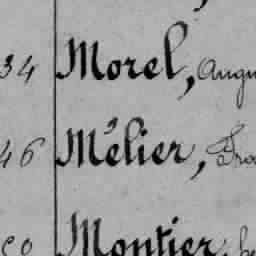 34 Morel, Augu
46 Mélier, Fra
Montier,